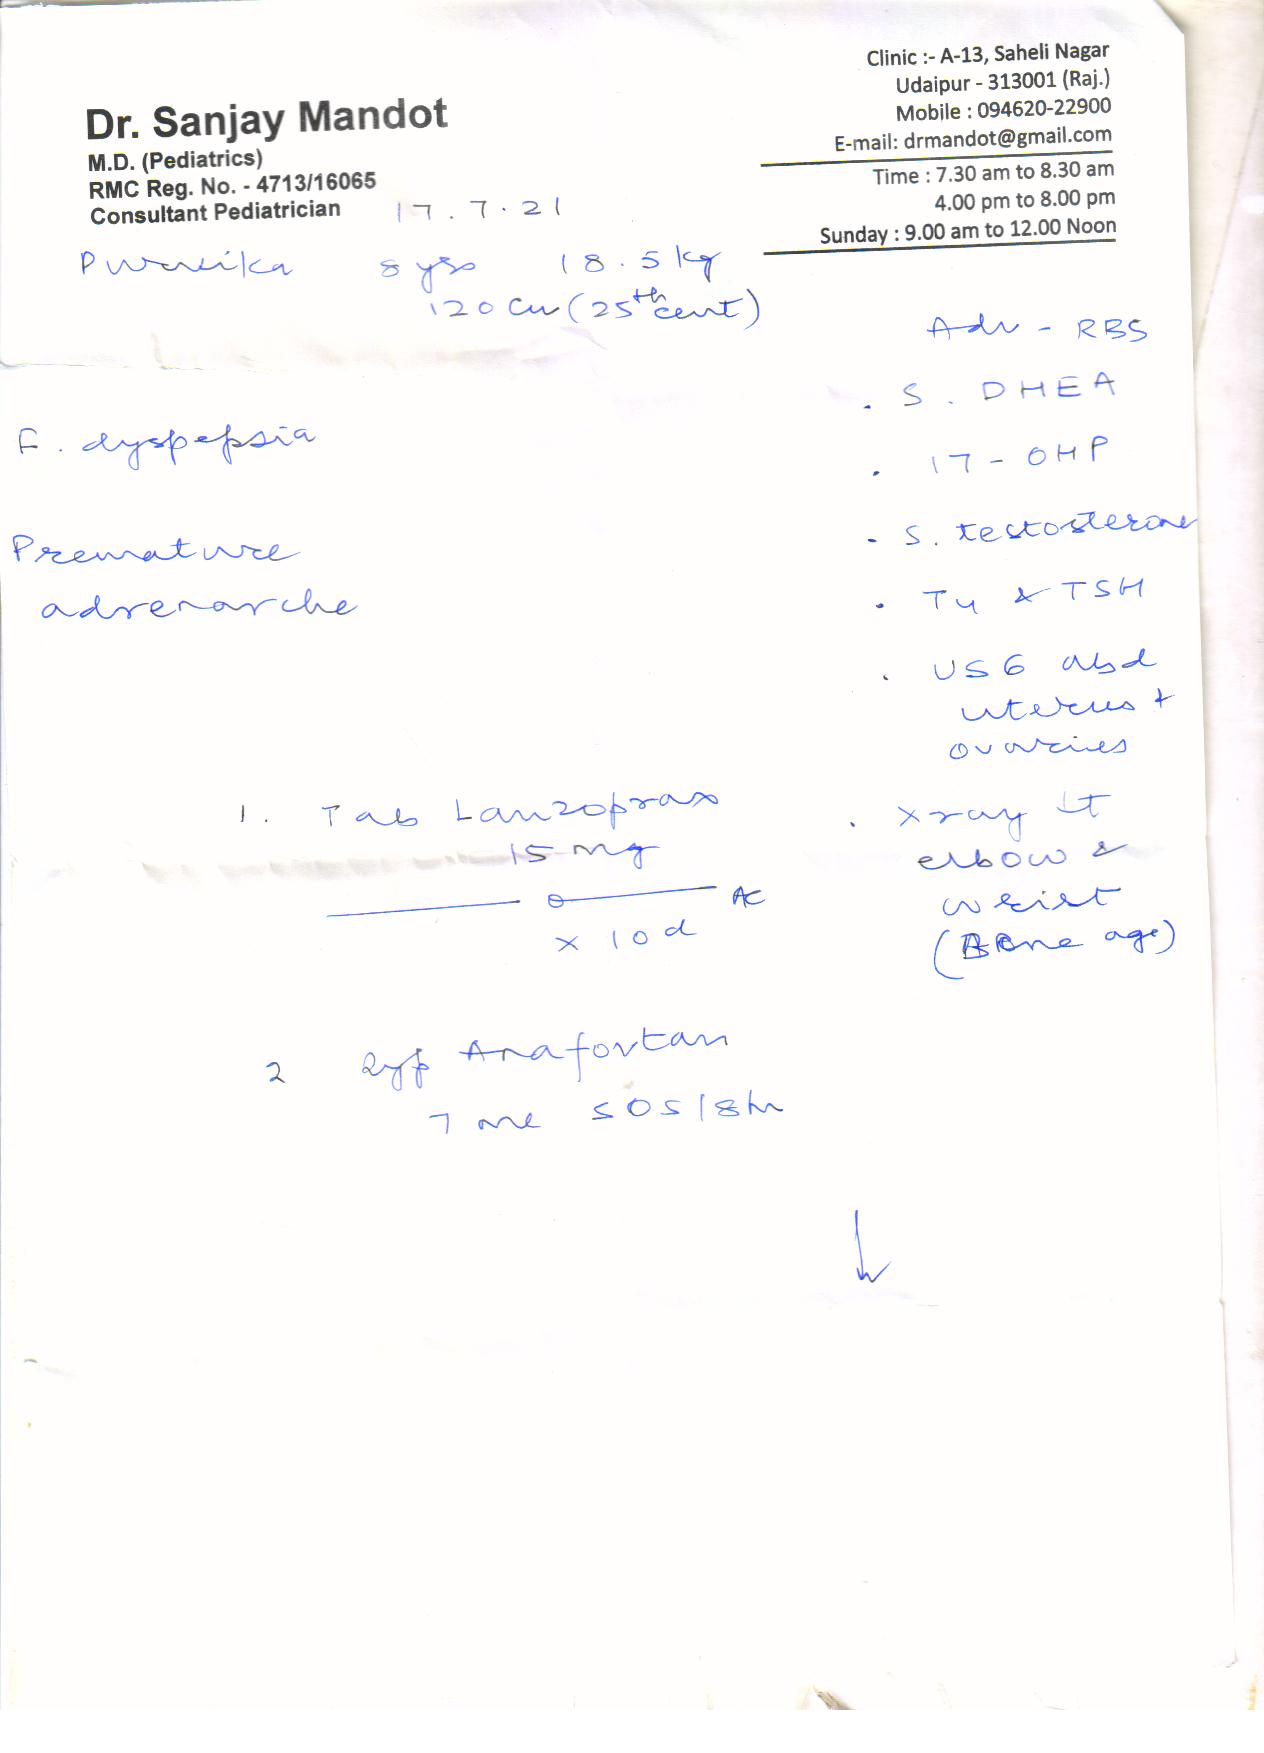 Dr. Sanjay Mandot
M.D. (Pediatrics)
RMC Reg. No. - 4713/16065
Consultant Pediatrician
Clinic :- A-13, Saheli Nagar
Udaipur - 313001 (Raj.)
Mobile : 094620-22900
E-mail: drmandot@gmail.com
Time : 7.30 am to 8.30 am
4.00 pm to 8.00 pm
Sunday : 9.00 am to 12.00 Noon
17.7.21
8 yrs 18.5 kg
120 cm (25th cent)
F. dyspepsia
Premature
adrenarche
Adv - RBS
. S. DHEA
. 17-OHP
- S. testosterone
. T4 & TSH
. USG abd
uterus +
ovaries
. Xray Lt
elbow &
wrist
(Bone age)
1. Tab Lanzoprax
15 mg
AC
x 10 d
2 Syp Anafortan
7 ml SOS/8hr